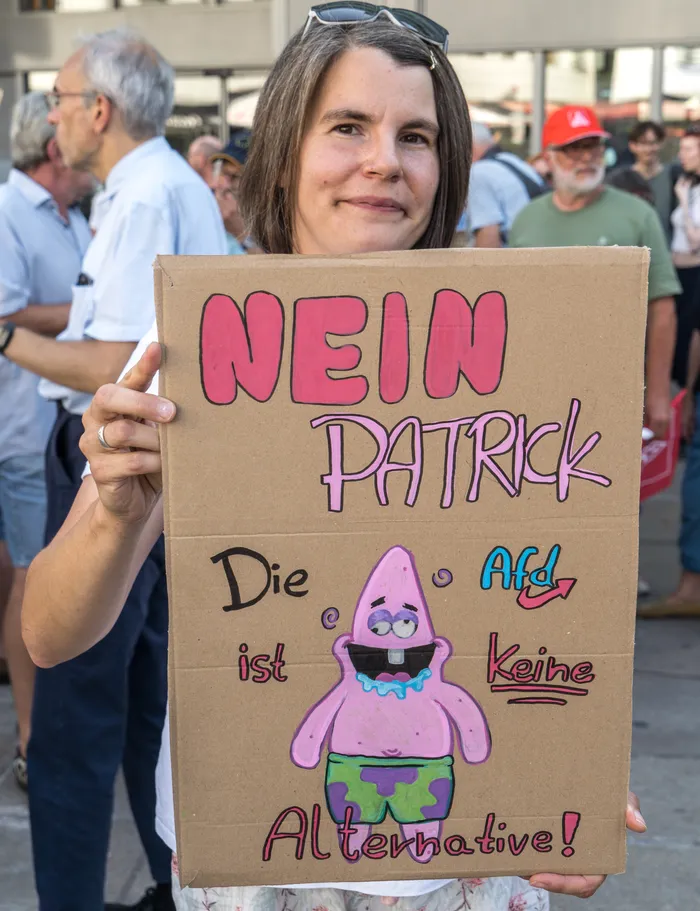 NEIN
PATRICK
Die Afd
ist Keine
Alternative!